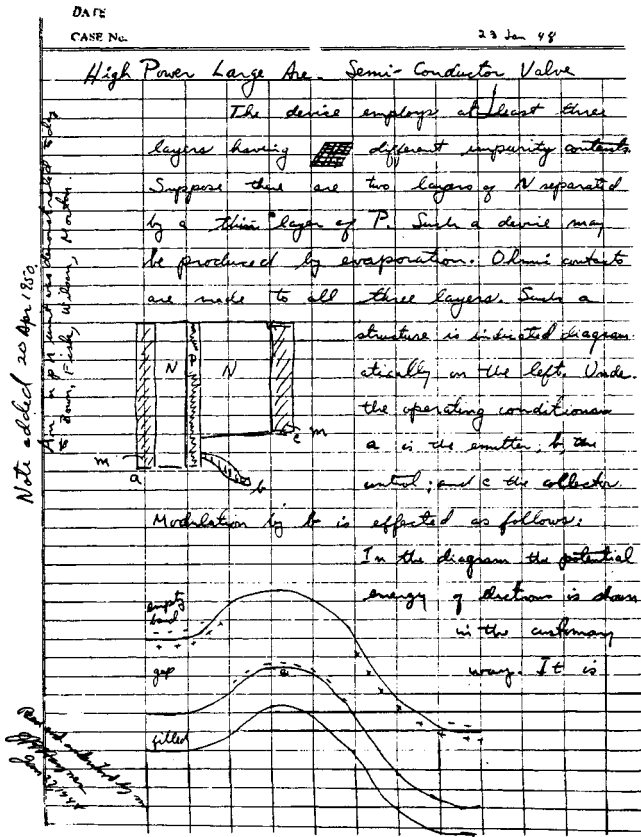 DATE
CASE No.
23 Jan 48
High Power Large Are- Semi-Conductor Valve
The device employs at least three
layers having different impurity contents.
Suppose there are two layers of N separated
by a thin layer of P. Such a device may
be produced by evaporation. Ohmic contacts
are made to all three layers. Such a
structure is indicated diagram
atically on the left. Under
the operating conditions
a is the emitter, b, the
control; and c the collector
N P N
m
a
b
c
m
Modulation by b is effected as follows:
In the diagram the potential
energy of electrons is shown
in the customary
way. It is
empty
band
gap
filled
Note added 20 Apr 1950.
An n p n unit was demonstrated today
to Bown, Fisk, Wilson, Morton.
Read and understood by me